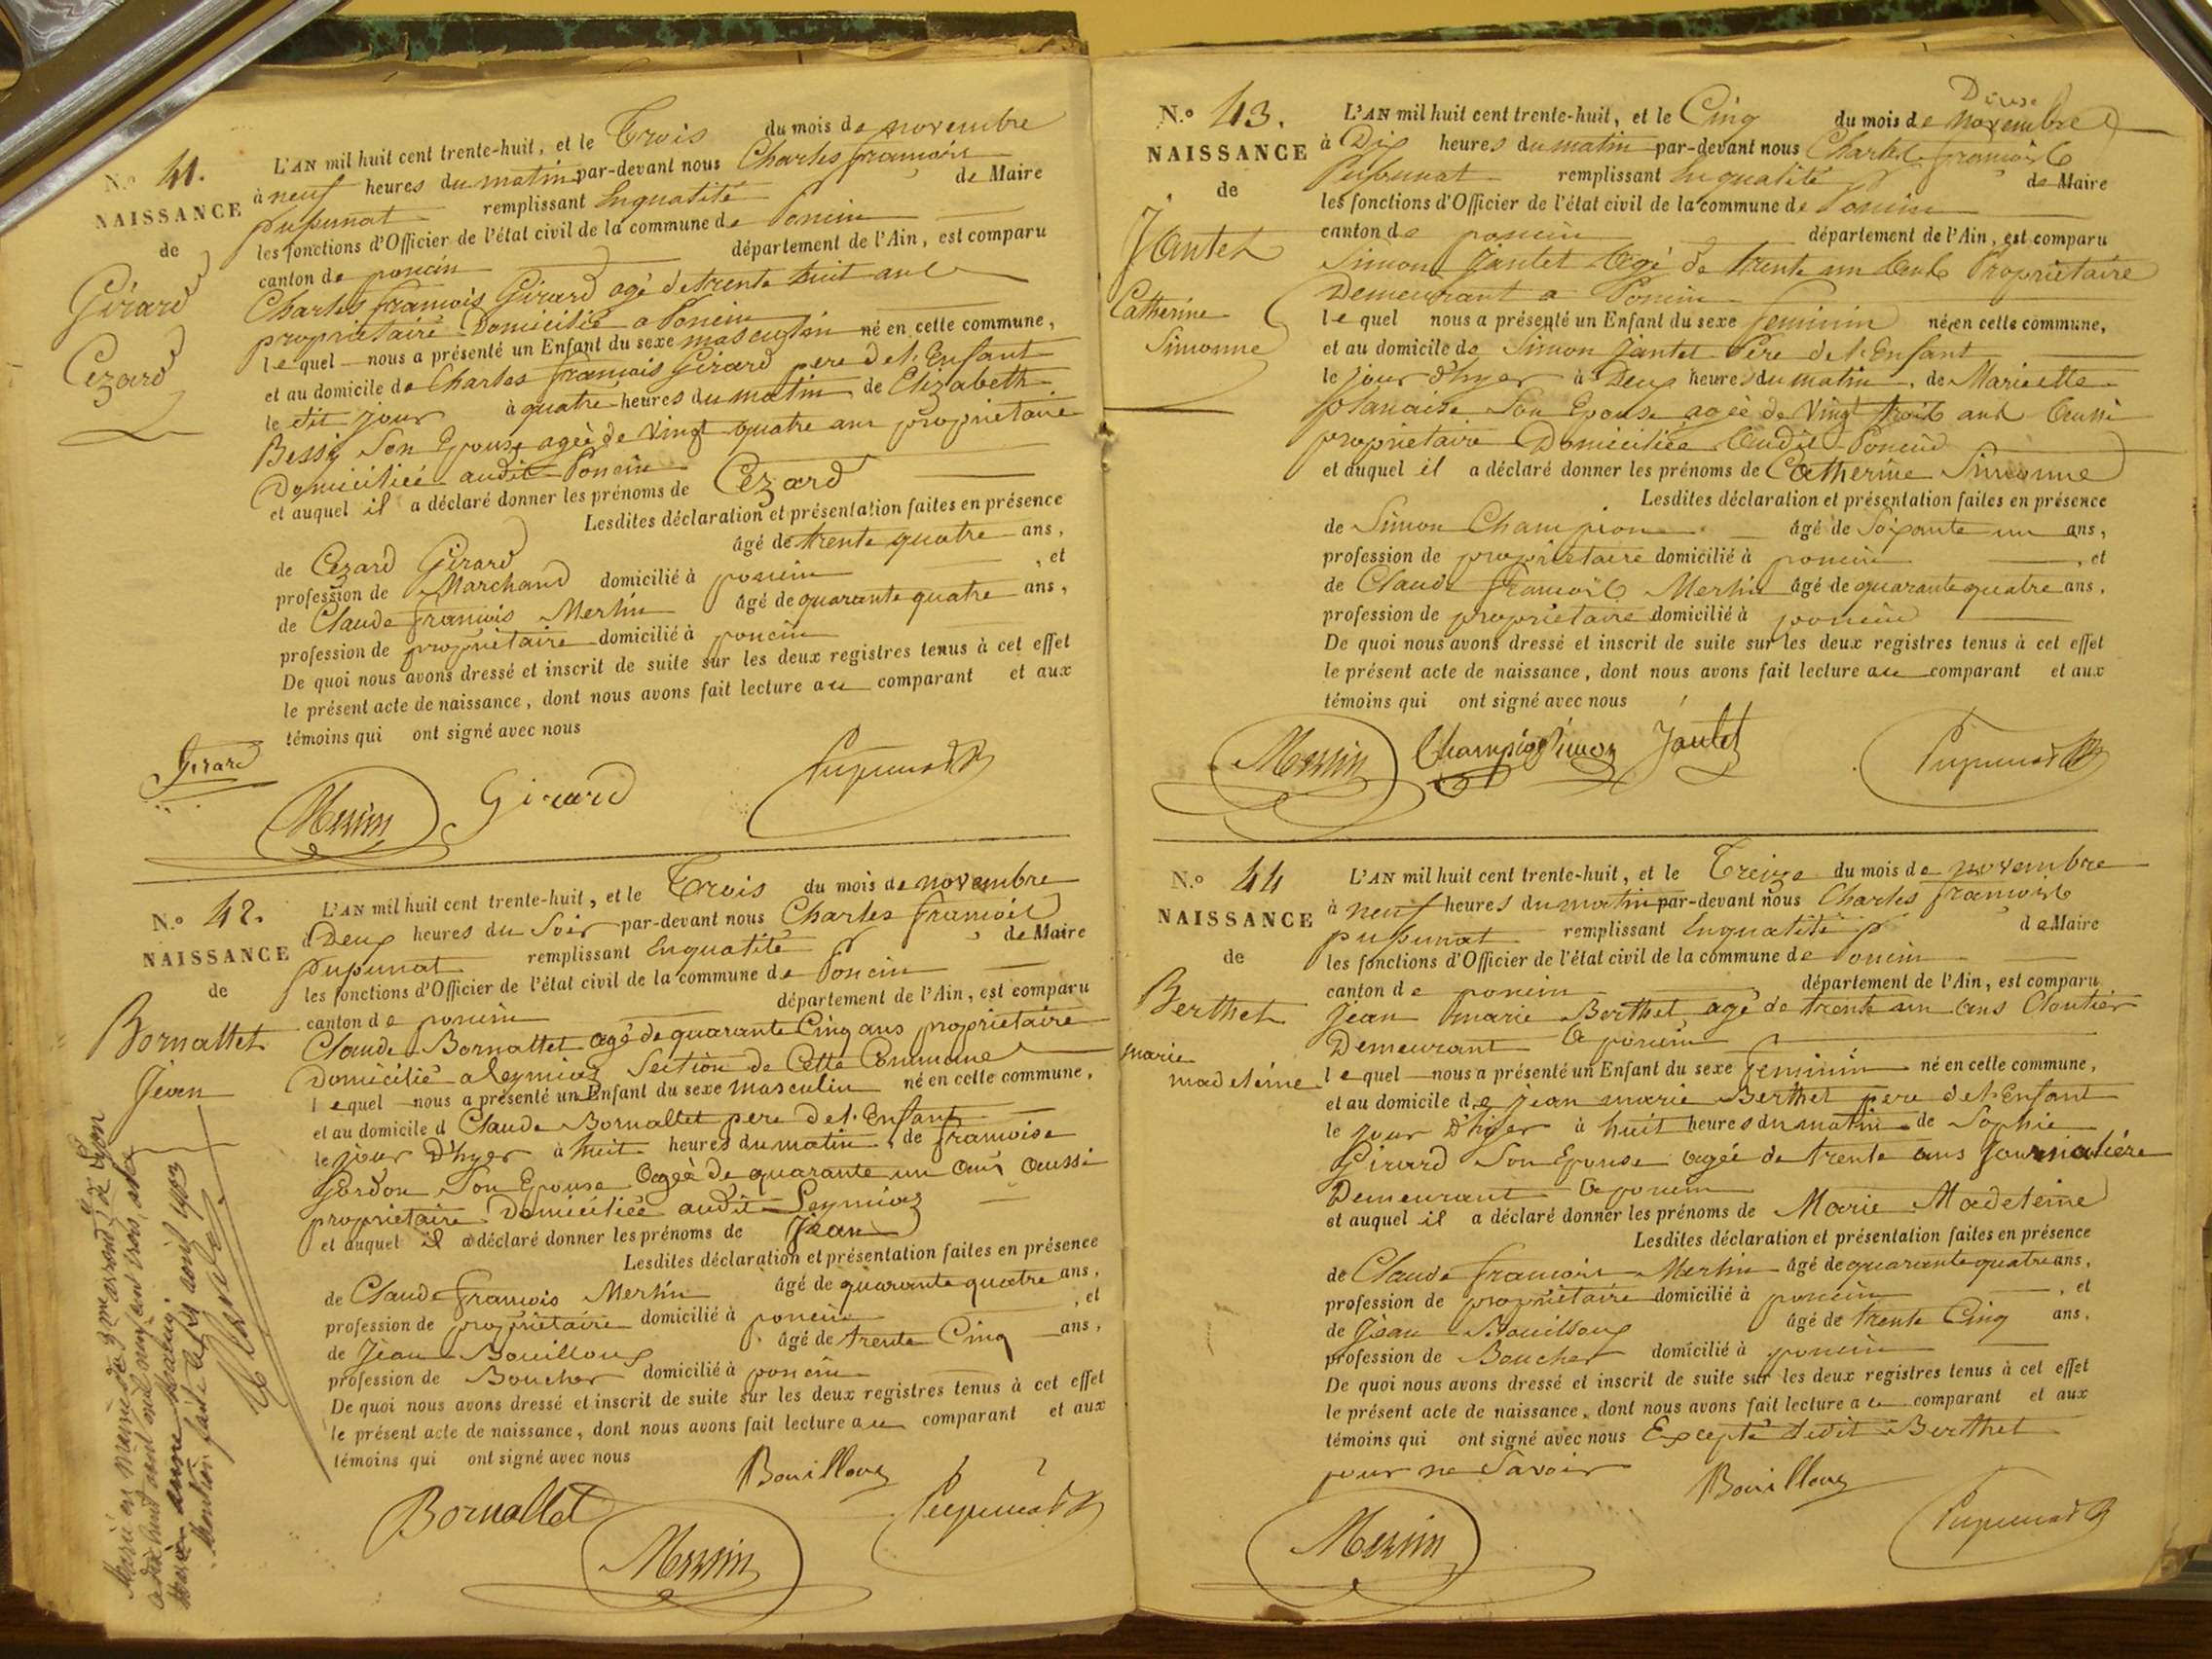 N.o 41.
NAISSANCE
de
Girard
Cezard
L'AN mil huit cent trente-huit, et le Trois du mois de novembre
à neuf heures du matin par-devant nous Charles françois
pupunat remplissant Enqualité de Maire
les fonctions d'Officier de l'état civil de la commune de Poncin
canton de poncin département de l'Ain, est comparu
Charles françois Girard agé de trente huit ans
proprietaire Domicilié a Poncin
lequel nous a présenté un Enfant du sexe masculin né en cette commune,
et au domicile de Charles françois Girard pere de l'Enfant
le dit jour à quatre heures du matin de Elizabeth
Bessy Son Epouse ageè de Vingt quatre ans proprietaire
Domiciliéé audit Poncin
et auquel il a déclaré donner les prénoms de Cezard
Lesdites déclaration et présentation faites en présence
de Cezard Girard âgé de trente quatre ans,
profession de Marchand domicilié à poncin , et
de Claude françois Merlin âgé de quarante quatre ans,
profession de proprietaire domicilié à poncin
De quoi nous avons dressé et inscrit de suite sur les deux registres tenus à cet effet
le présent acte de naissance, dont nous avons fait lecture au comparant et aux
témoins qui ont signé avec nous
Girard
Merlin Girard Pupunat
N.o 42.
NAISSANCE
de
Bornattet
Jean
L'AN mil huit cent trente-huit, et le Trois du mois de novembre
à Deux heures du Soir par-devant nous Charles françois
pupunat remplissant Enqualité de Maire
les fonctions d'Officier de l'état civil de la commune de Poncin
canton de poncin département de l'Ain, est comparu
Claude Bornattet agé de quarante Cinq ans proprietaire
Domicilié a leymiaz Section de Cette Commune
lequel nous a présenté un Enfant du sexe masculin né en cette commune,
et au domicile d Claude Bornattet pere de l'Enfant
le jour D'hyer à huit heures du matin de françoise
Gordon Son Epouse Ageè de quarante un ans aussi
proprietaire Domiciliéé audit Leymiaz
et auquel il a déclaré donner les prénoms de Jean
Lesdites déclaration et présentation faites en présence
de Claude françois Merlin âgé de quarante quatre ans,
profession de proprietaire domicilié à poncin , et
de Jean Bouilloux âgé de trente Cinq ans,
profession de Boucher domicilié à poncin
De quoi nous avons dressé et inscrit de suite sur les deux registres tenus à cet effet
le présent acte de naissance, dont nous avons fait lecture au comparant et aux
témoins qui ont signé avec nous
Bornattet Merlin Bouilloux Pupunat
Marié en Mairie du 3me arrond. de Lyon
Mention faite le août 1903
N.o 43.
NAISSANCE
de
Jantet
Catherine
Simonne
L'AN mil huit cent trente-huit, et le Cinq du mois de novembre
à Dix heures du matin par-devant nous Charles françois
Pupunat remplissant Enqualité de Maire
les fonctions d'Officier de l'état civil de la commune de Poncin
canton de poncin département de l'Ain, est comparu
Simon Jantet Agé de trente un ans Proprietaire
Demeurant a Poncin
lequel nous a présenté un Enfant du sexe feminin né en cette commune,
et au domicile de Simon Jantet Pere de l'Enfant
le jour d'hyer à Deux heures du matin, de Mariette
planaise Son Epouse ageè de Vingt trois ans Aussi
proprietaire Domiciliéé Audit Poncin
et auquel il a déclaré donner les prénoms de Catherine Simonne
Lesdites déclaration et présentation faites en présence
de Simon Champion âgé de Soixante un ans,
profession de proprietaire domicilié à poncin , et
de Claude françois Merlin âgé de quarante quatre ans,
profession de proprietaire domicilié à poncin
De quoi nous avons dressé et inscrit de suite sur les deux registres tenus à cet effet
le présent acte de naissance, dont nous avons fait lecture au comparant et aux
témoins qui ont signé avec nous
Merlin Champion Simon Jantet Pupunat
N.o 44
NAISSANCE
de
Berthet
marie
madeleine
L'AN mil huit cent trente-huit, et le Treize du mois de novembre
à neuf heures du matin par-devant nous Charles françois
pupunat remplissant Enqualité de Maire
les fonctions d'Officier de l'état civil de la commune de Poncin
canton de poncin département de l'Ain, est comparu
Jean marie Berthet agé de trente un ans Cloutier
Demeurant A poncin
lequel nous a présenté un Enfant du sexe feminin né en cette commune,
et au domicile de jean marie Berthet pere de l'Enfant
le jour D'hyer à huit heures du matin de Sophie
Girard Son Epouse ageé de trente ans Journaliére
Demeurant A poncin
et auquel il a déclaré donner les prénoms de Marie Madeleine
Lesdites déclaration et présentation faites en présence
de Claude françois Merlin âgé de quarante quatre ans,
profession de proprietaire domicilié à poncin , et
de Jean Bouilloux âgé de trente Cinq ans,
profession de Boucher domicilié à poncin
De quoi nous avons dressé et inscrit de suite sur les deux registres tenus à cet effet
le présent acte de naissance, dont nous avons fait lecture au comparant et aux
témoins qui ont signé avec nous Excepté ledit Berthet
pour ne Savoir
Merlin Bouilloux Pupunat